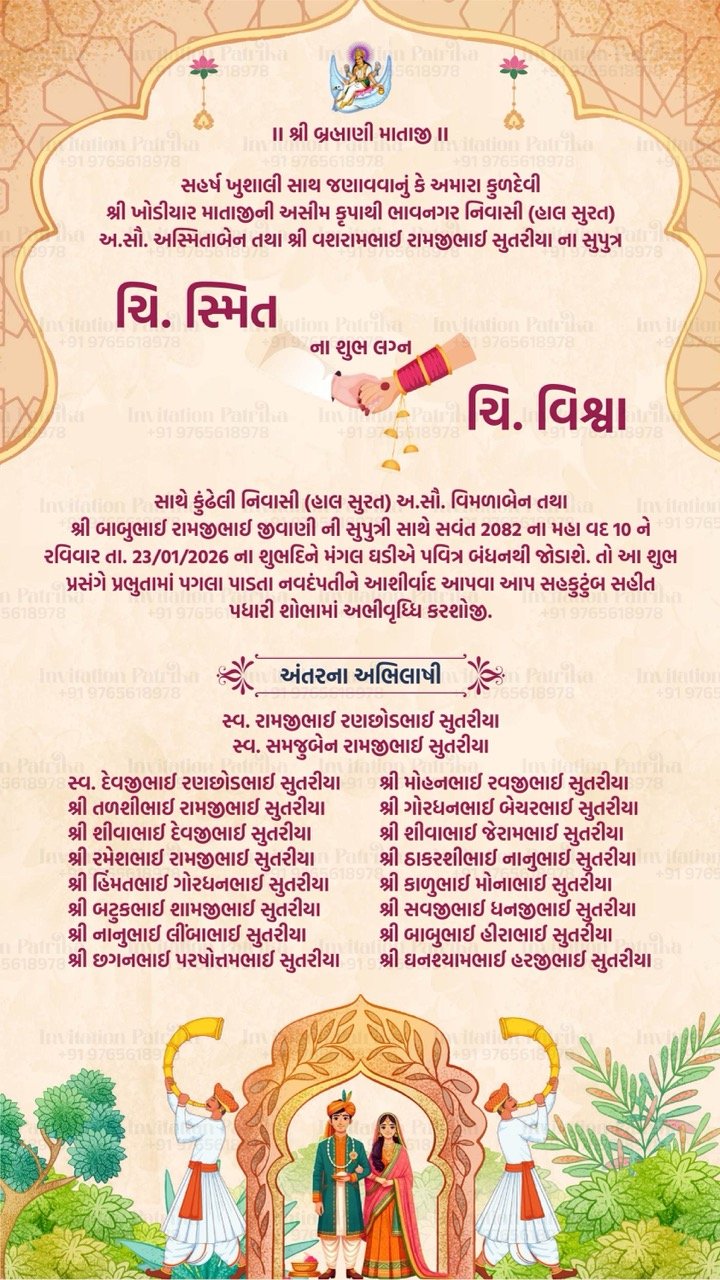 ॥ શ્રી બ્રહ્માણી માતાજી ॥
સહર્ષ ખુશાલી સાથ જણાવવાનું કે અમારા કુળદેવી
શ્રી ખોડીયાર માતાજીની અસીમ કૃપાથી ભાવનગર નિવાસી (હાલ સુરત)
અ.સૌ. અસ્મિતાબેન તથા શ્રી વશરામભાઈ રામજીભાઈ સુતરીયા ના સુપુત્ર
ચિ. સ્મિત
ના શુભ લગ્ન
ચિ. વિશ્વા
સાથે કુંઢેલી નિવાસી (હાલ સુરત) અ.સૌ. વિમળાબેન તથા
શ્રી બાબુભાઈ રામજીભાઈ જીવાણી ની સુપુત્રી સાથે સવંત 2082 ના મહા વદ 10 ને
રવિવાર તા. 23/01/2026 ના શુભદિને મંગલ ઘડીએ પવિત્ર બંધનથી જોડાશે. તો આ શુભ
પ્રસંગે પ્રભુતામાં પગલા પાડતા નવદંપતીને આશીર્વાદ આપવા આપ સહકુટુંબ સહીત
પધારી શોભામાં અભીવૃધ્ધિ કરશોજી.
અંતરના અભિલાષી
સ્વ. રામજીભાઈ રણછોડભાઈ સુતરીયા
સ્વ. સમજુબેન રામજીભાઈ સુતરીયા
સ્વ. દેવજીભાઈ રણછોડભાઈ સુતરીયા
શ્રી તળશીભાઈ રામજીભાઈ સુતરીયા
શ્રી શીવાભાઈ દેવજીભાઈ સુતરીયા
શ્રી રમેશભાઈ રામજીભાઈ સુતરીયા
શ્રી હિંમતભાઈ ગોરધનભાઈ સુતરીયા
શ્રી બટુકભાઈ શામજીભાઈ સુતરીયા
શ્રી નાનુભાઈ લીંબાભાઈ સુતરીયા
શ્રી છગનભાઈ પરષોત્તમભાઈ સુતરીયા
શ્રી મોહનભાઈ રવજીભાઈ સુતરીયા
શ્રી ગોરધનભાઈ બેચરભાઈ સુતરીયા
શ્રી શીવાભાઈ જેરામભાઈ સુતરીયા
શ્રી ઠાકરશીભાઈ નાનુભાઈ સુતરીયા
શ્રી કાળુભાઈ મોનાભાઈ સુતરીયા
શ્રી સવજીભાઈ ધનજીભાઈ સુતરીયા
શ્રી બાબુભાઈ હીરાભાઈ સુતરીયા
શ્રી ઘનશ્યામભાઈ હરજીભાઈ સુતરીયા
Invitation Patrika
+91 9765618978